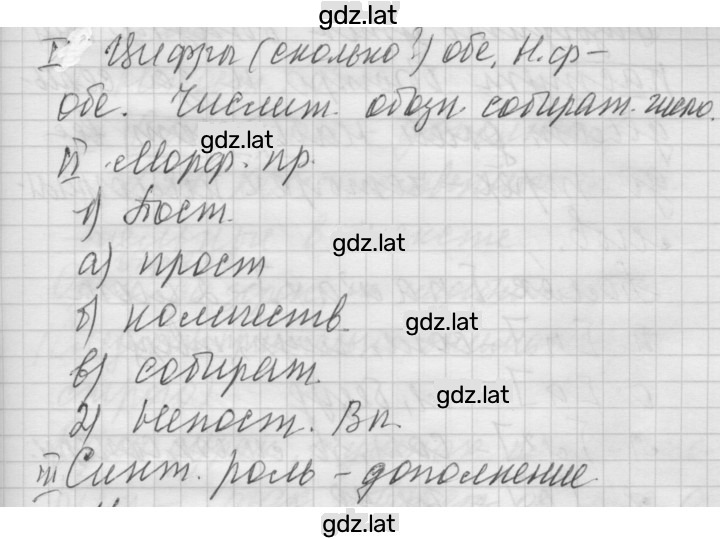 gdz.lat
I Цифры (сколько?) обе, Н.ф –
обе. Числит. обозн собират. число.
gdz.lat
II Морф. пр.
1) Пост.
gdz.lat
а) прост
б) количеств.
gdz.lat
в) собират.
gdz.lat
2) Непост. Вп.
III Синт. роль – дополнение
gdz.lat